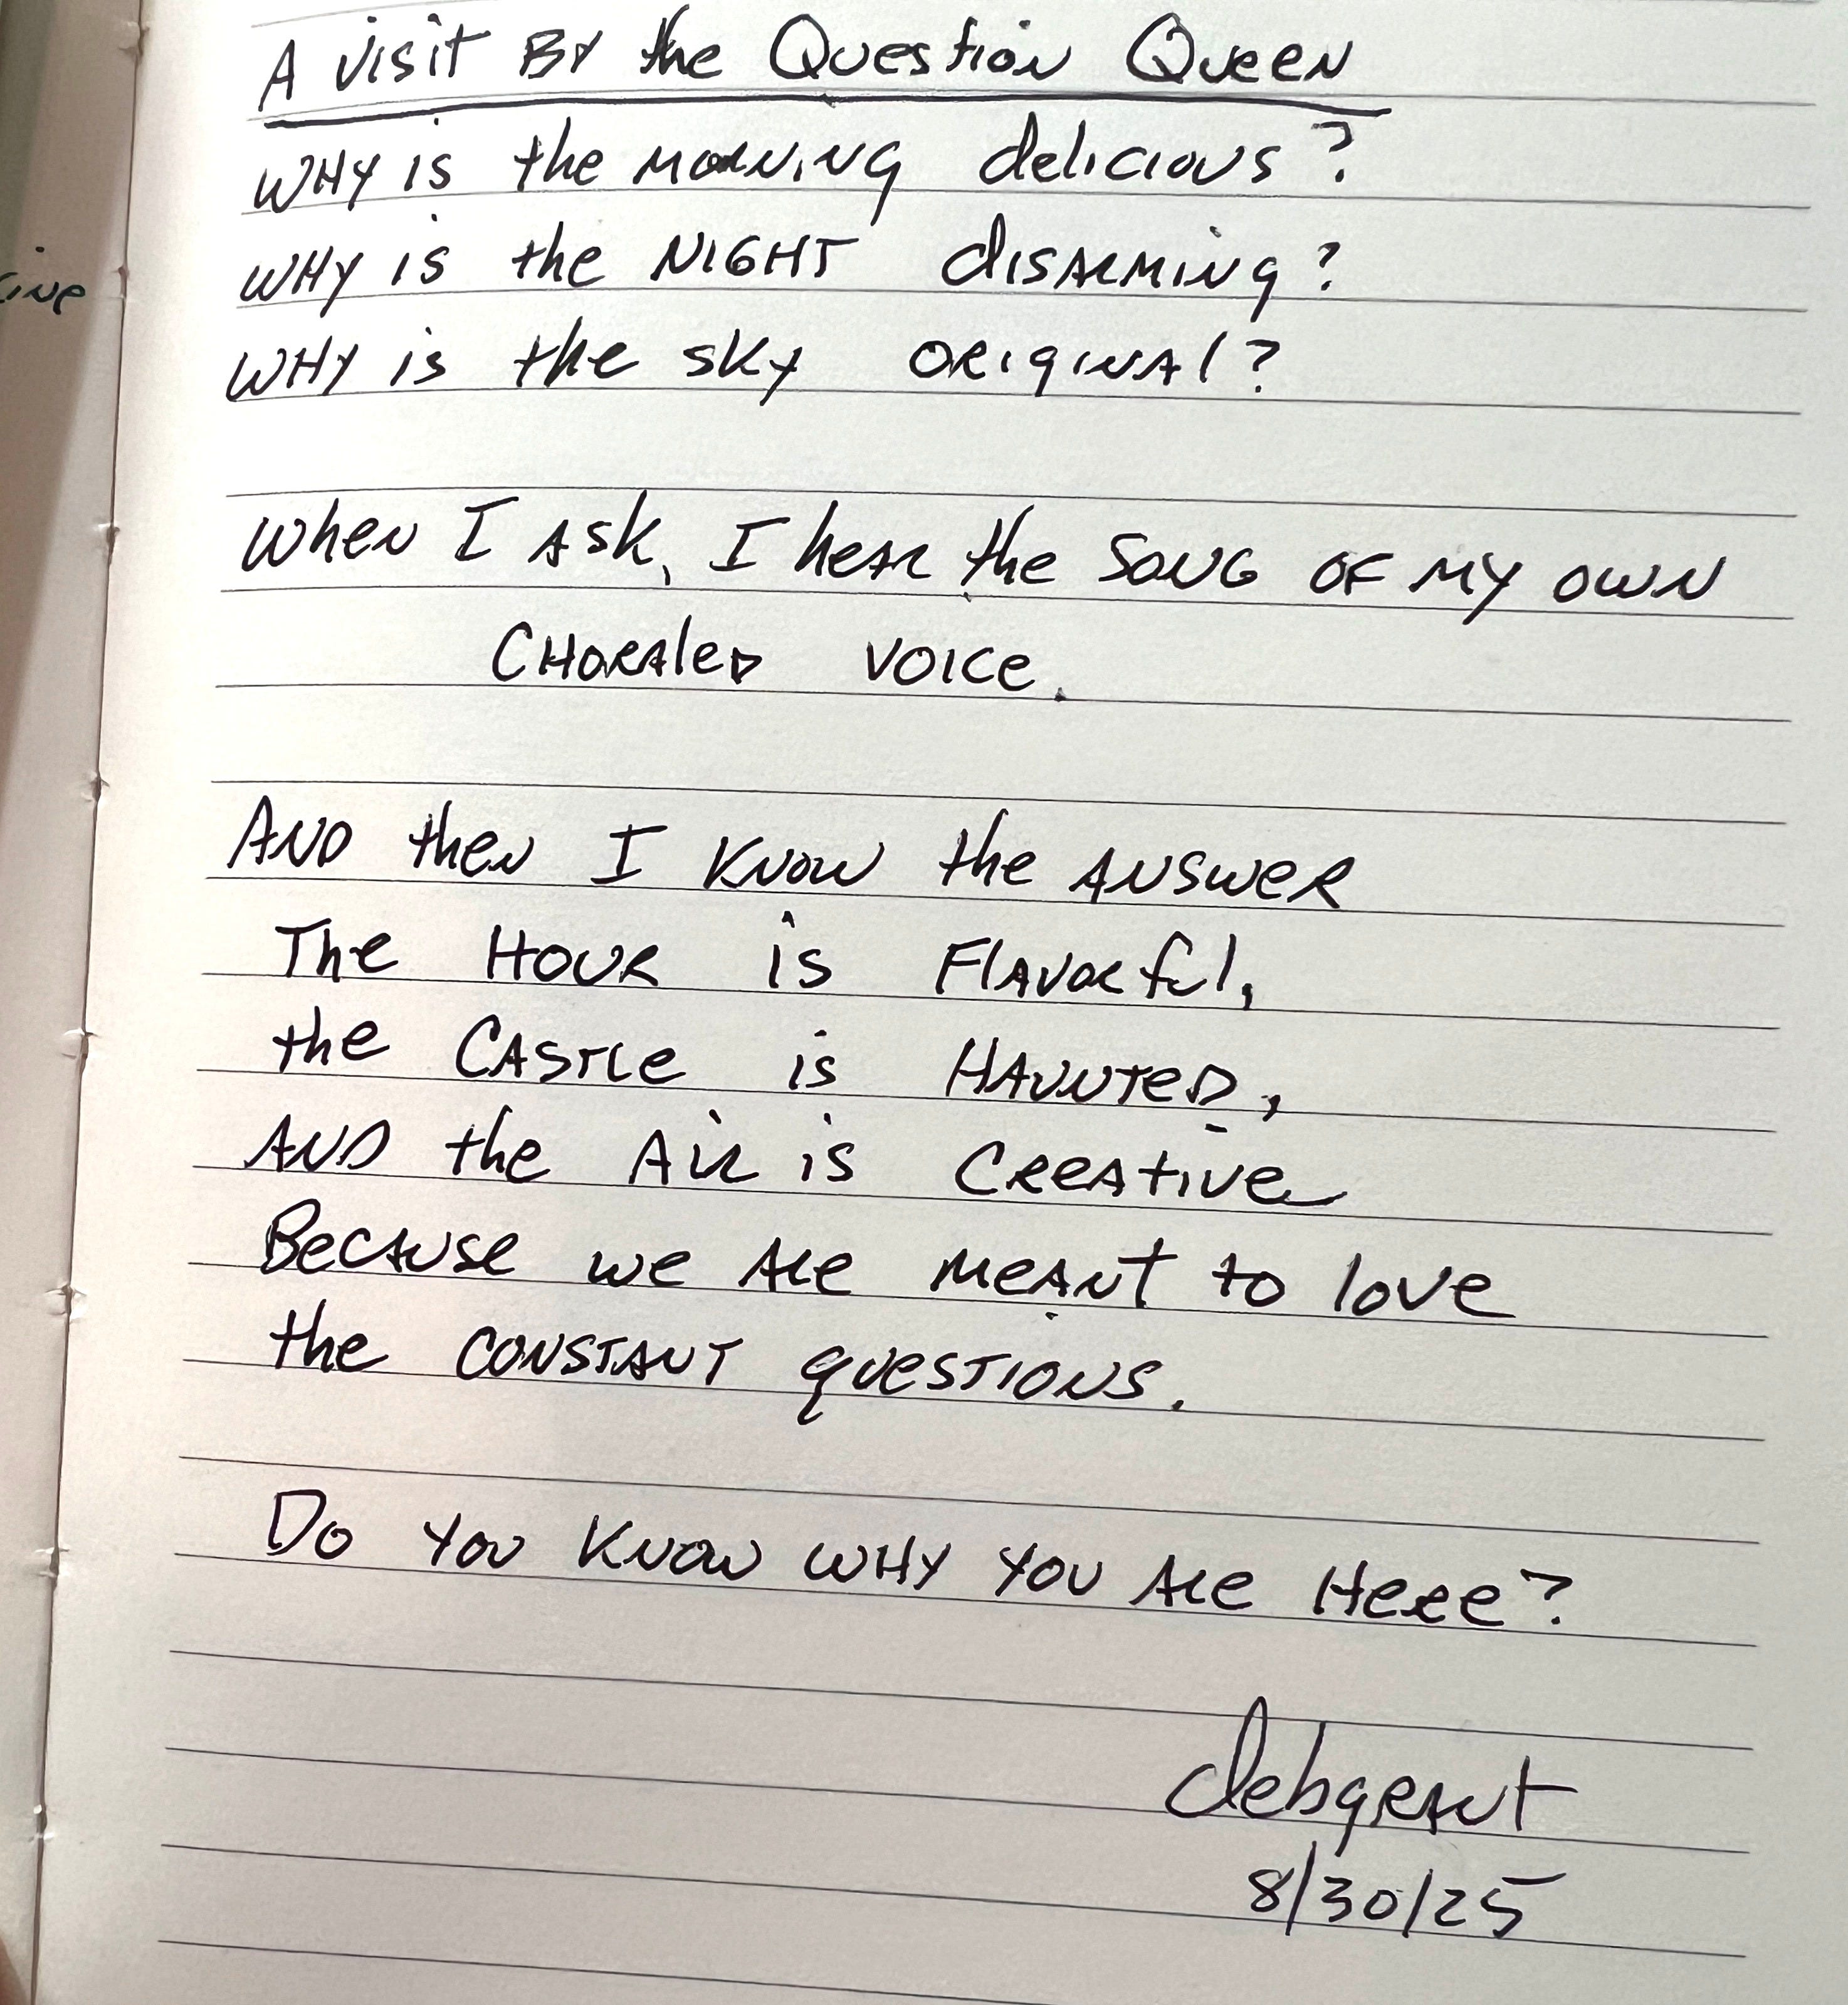 A Visit By the Question Queen
Why is the Morning delicious?
Why is the NIGHT disarming?
Why is the sky original?
When I Ask, I hear the Song of my own
Choraled voice.
And then I know the answer
The Hour is Flavorful,
the Castle is Haunted,
And the Air is Creative
Because we are meant to love
the constant questions.
Do you know why you are Here?
debgrant
8/30/25